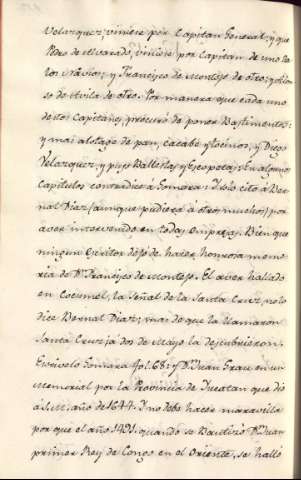 Velazquez, viniese por Capitan General; y que
Pedro de Alvarado, viniese por Capitan de uno de
los Navios; y Francisco de Montejo de otro; y Alon-
so de Avila de otro. Por manera que cada uno
de los Capitanes, procuró de poner Bastimentos:
y mas alotage de pan, cacabe y tocinos, y Diego
Velazquez, y puso Ballestas, y Escopetas; En algunos
Capitulos contradice a Gomara: I solo cito á Ber-
nal Diaz (aunque pudiera á otros muchos) por
aver intervenido en todas empresas. Bien que
ningun Escritor dejó de hacer honrosa memo-
ria de Dn. Francisco de Montejo. El aver hallado
en Cocumel, la Señal de la Santa Cruz, no lo
dice Bernal Diaz; mas de que la llamaron
Santa Cruz, á dos de Mayo la descubrieron.
Escrivelo Gomara fol. 68: y Dn. Juan Grau en un
Memorial por la Provincia de Yucatan que dió
á S.M. año de 1644. I no debe hacer maravilla
por que el año 1491. quando se Bautizó Dn. Juan
primer Rey de Congo en el Oriente, se halló